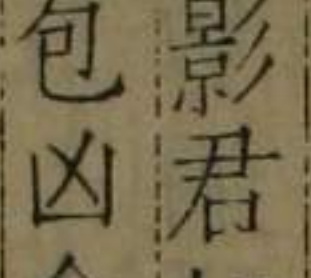 影君
包凶